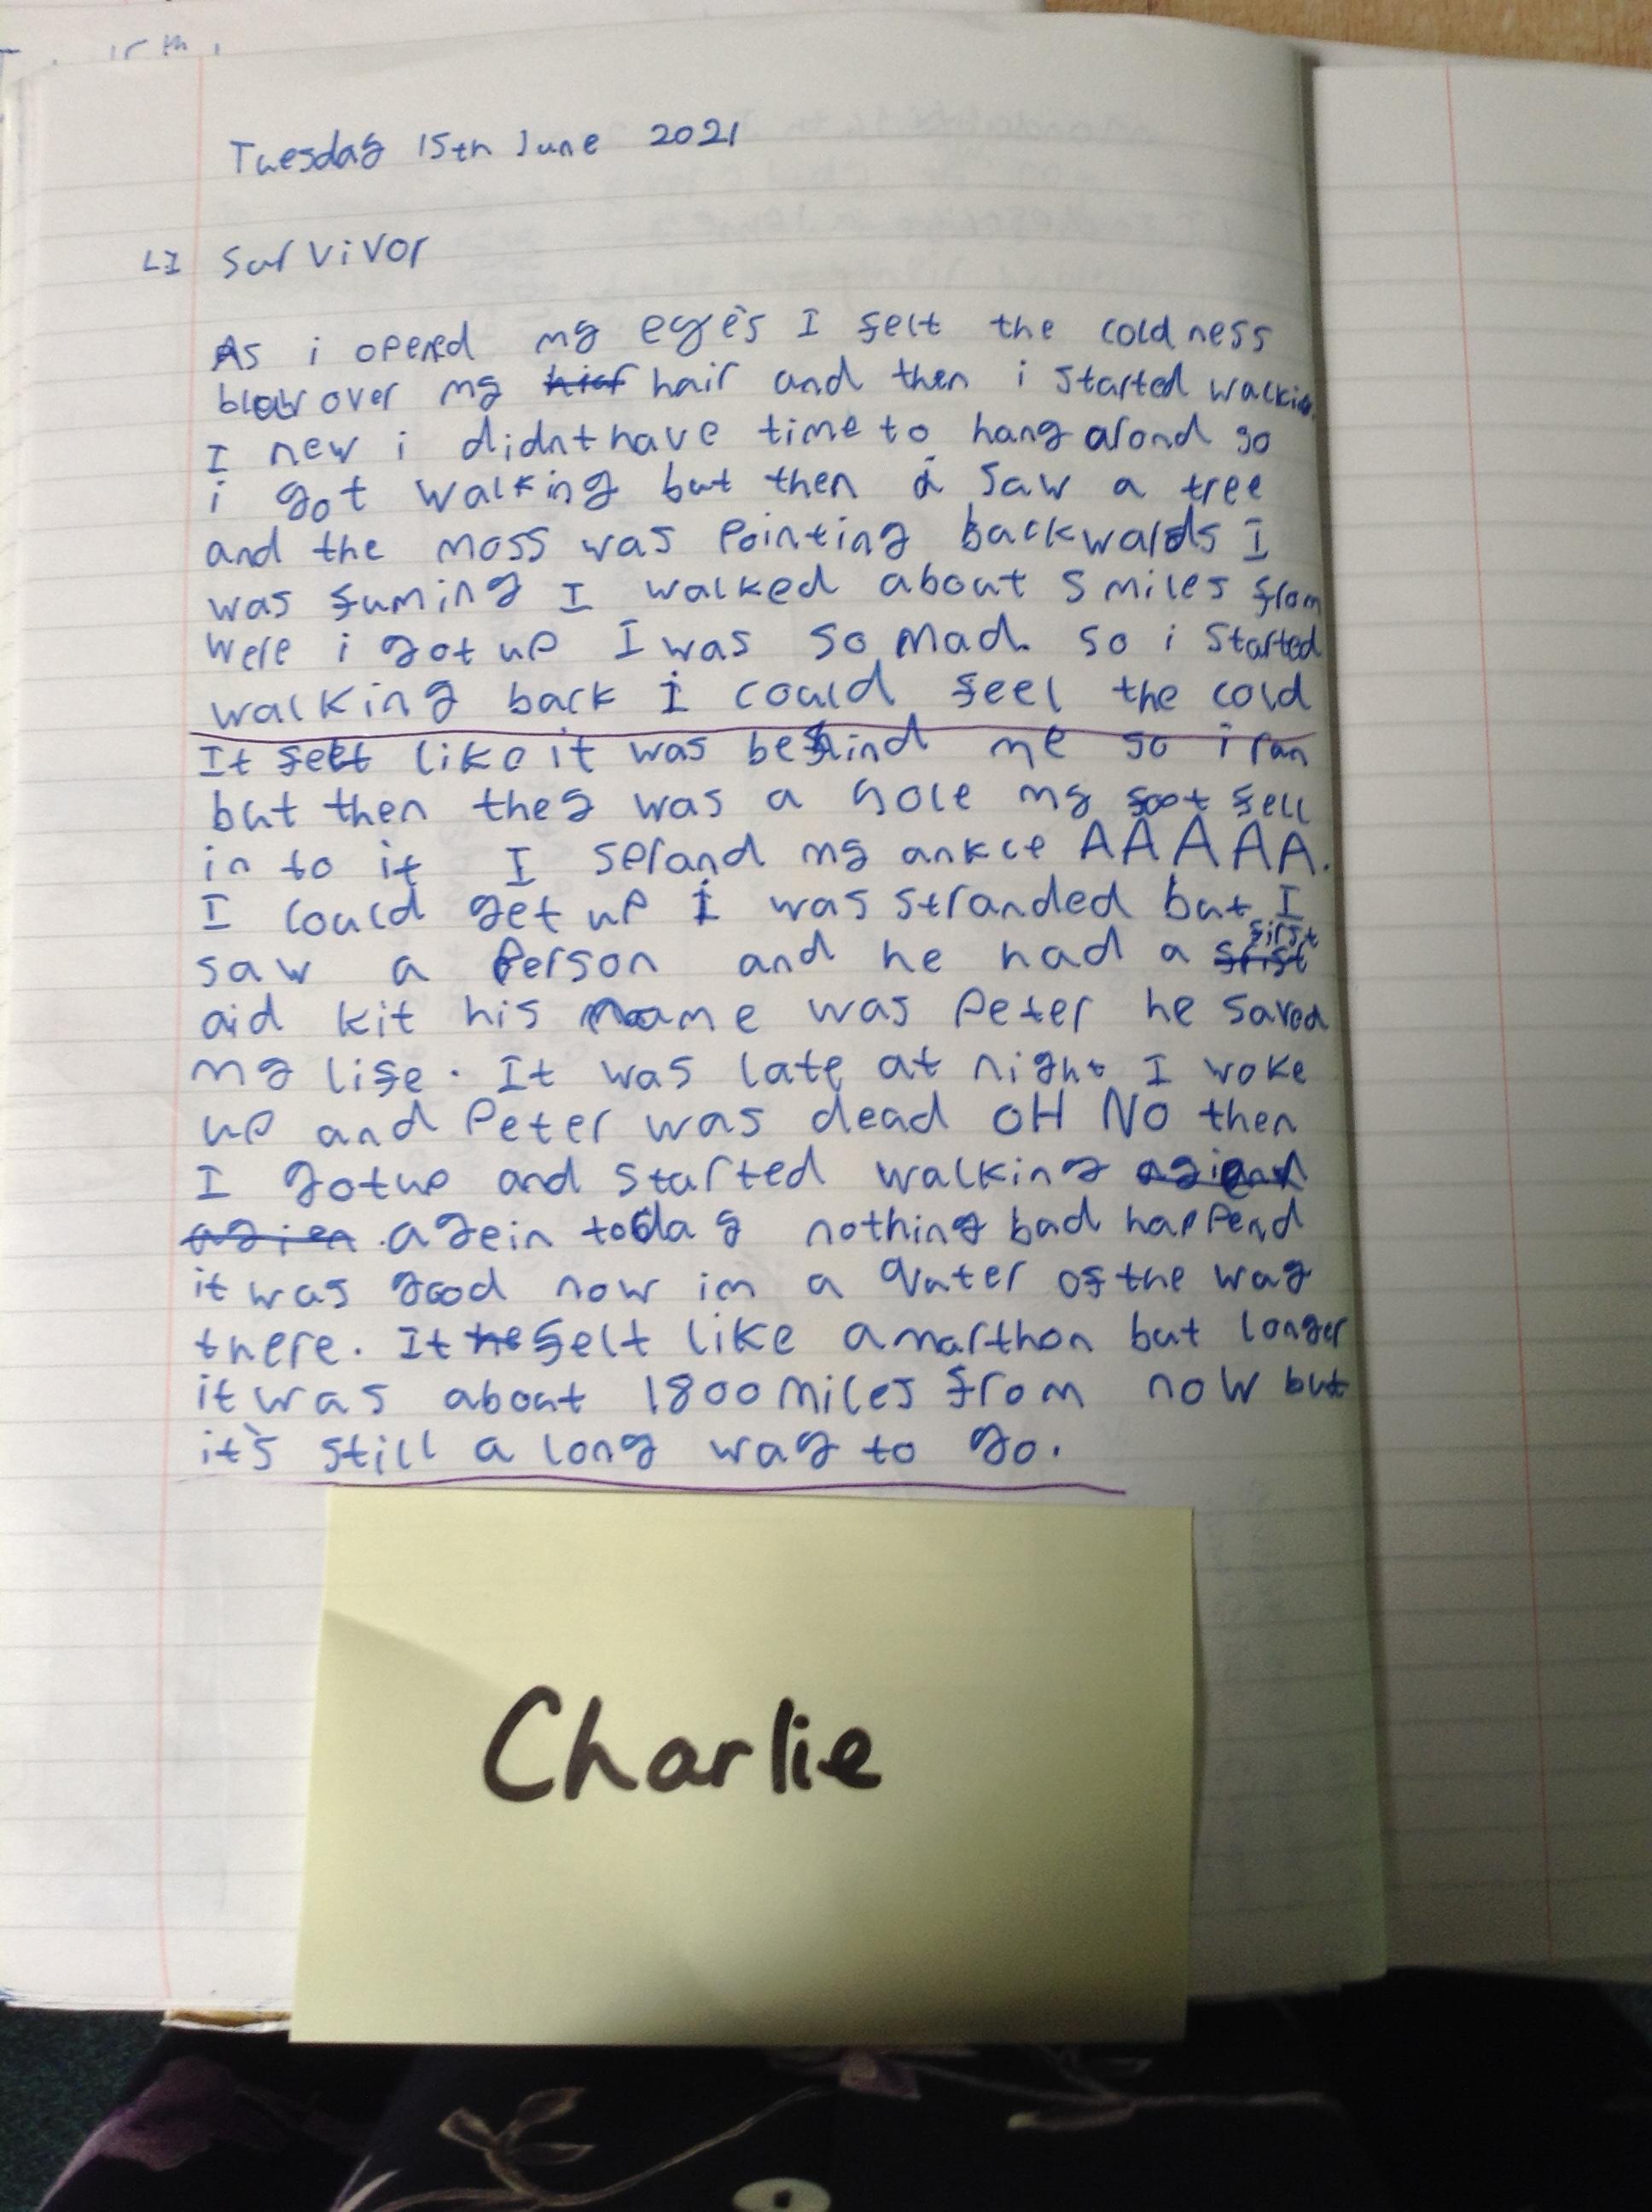 15th
Tuesday 15th June 2021
LI Survivor
As i opened my eye's I felt the coldness
blow over my hair and then i started walking
I new i didnt have time to hang arond so
i got walking but then i saw a tree
and the moss was pointing backwards I
was fuming I walked about 5 miles from
were i got up I was so mad so i started
walking back i could feel the cold
It felt like it was behind me so i ran
but then they was a hole my foot fell
in to it I sprand my ankle AAAAA.
I could get up i was stranded but I
saw a person and he had a first
aid kit his name was Peter he saved
my life. It was late at night I woke
up and Peter was dead OH NO then
I got up and started walking
agein today nothing bad happend
it was good now im a quater of the way
there. It felt like a marthon but longer
it was about 1800 miles from now but
it's still a long way to go.
Charlie